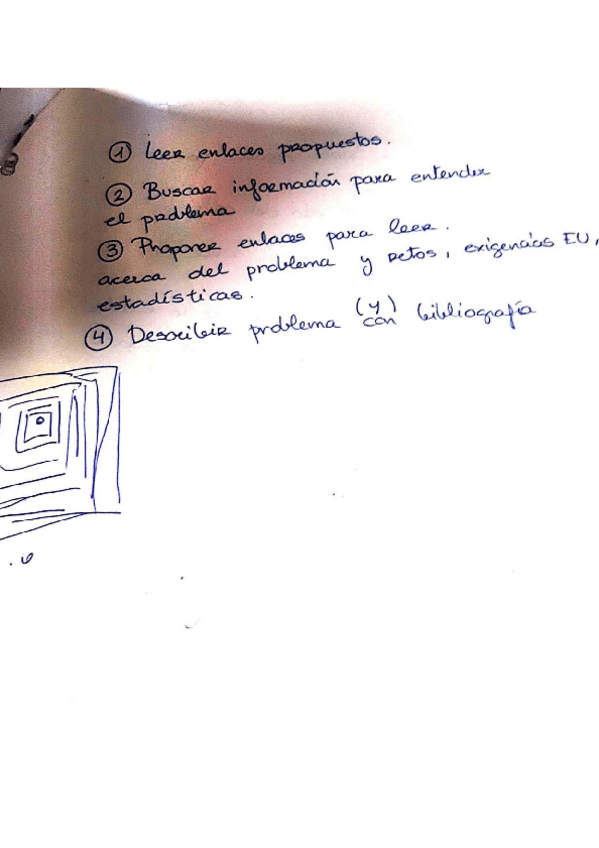 ① Leer enlaces propuestos.
② Buscar información para entender
el problema
③ Proponer enlaces para leer.
acerca del problema y retos, exigencias EU,
estadísticas.
④ Describir problema (y) con bibliografía